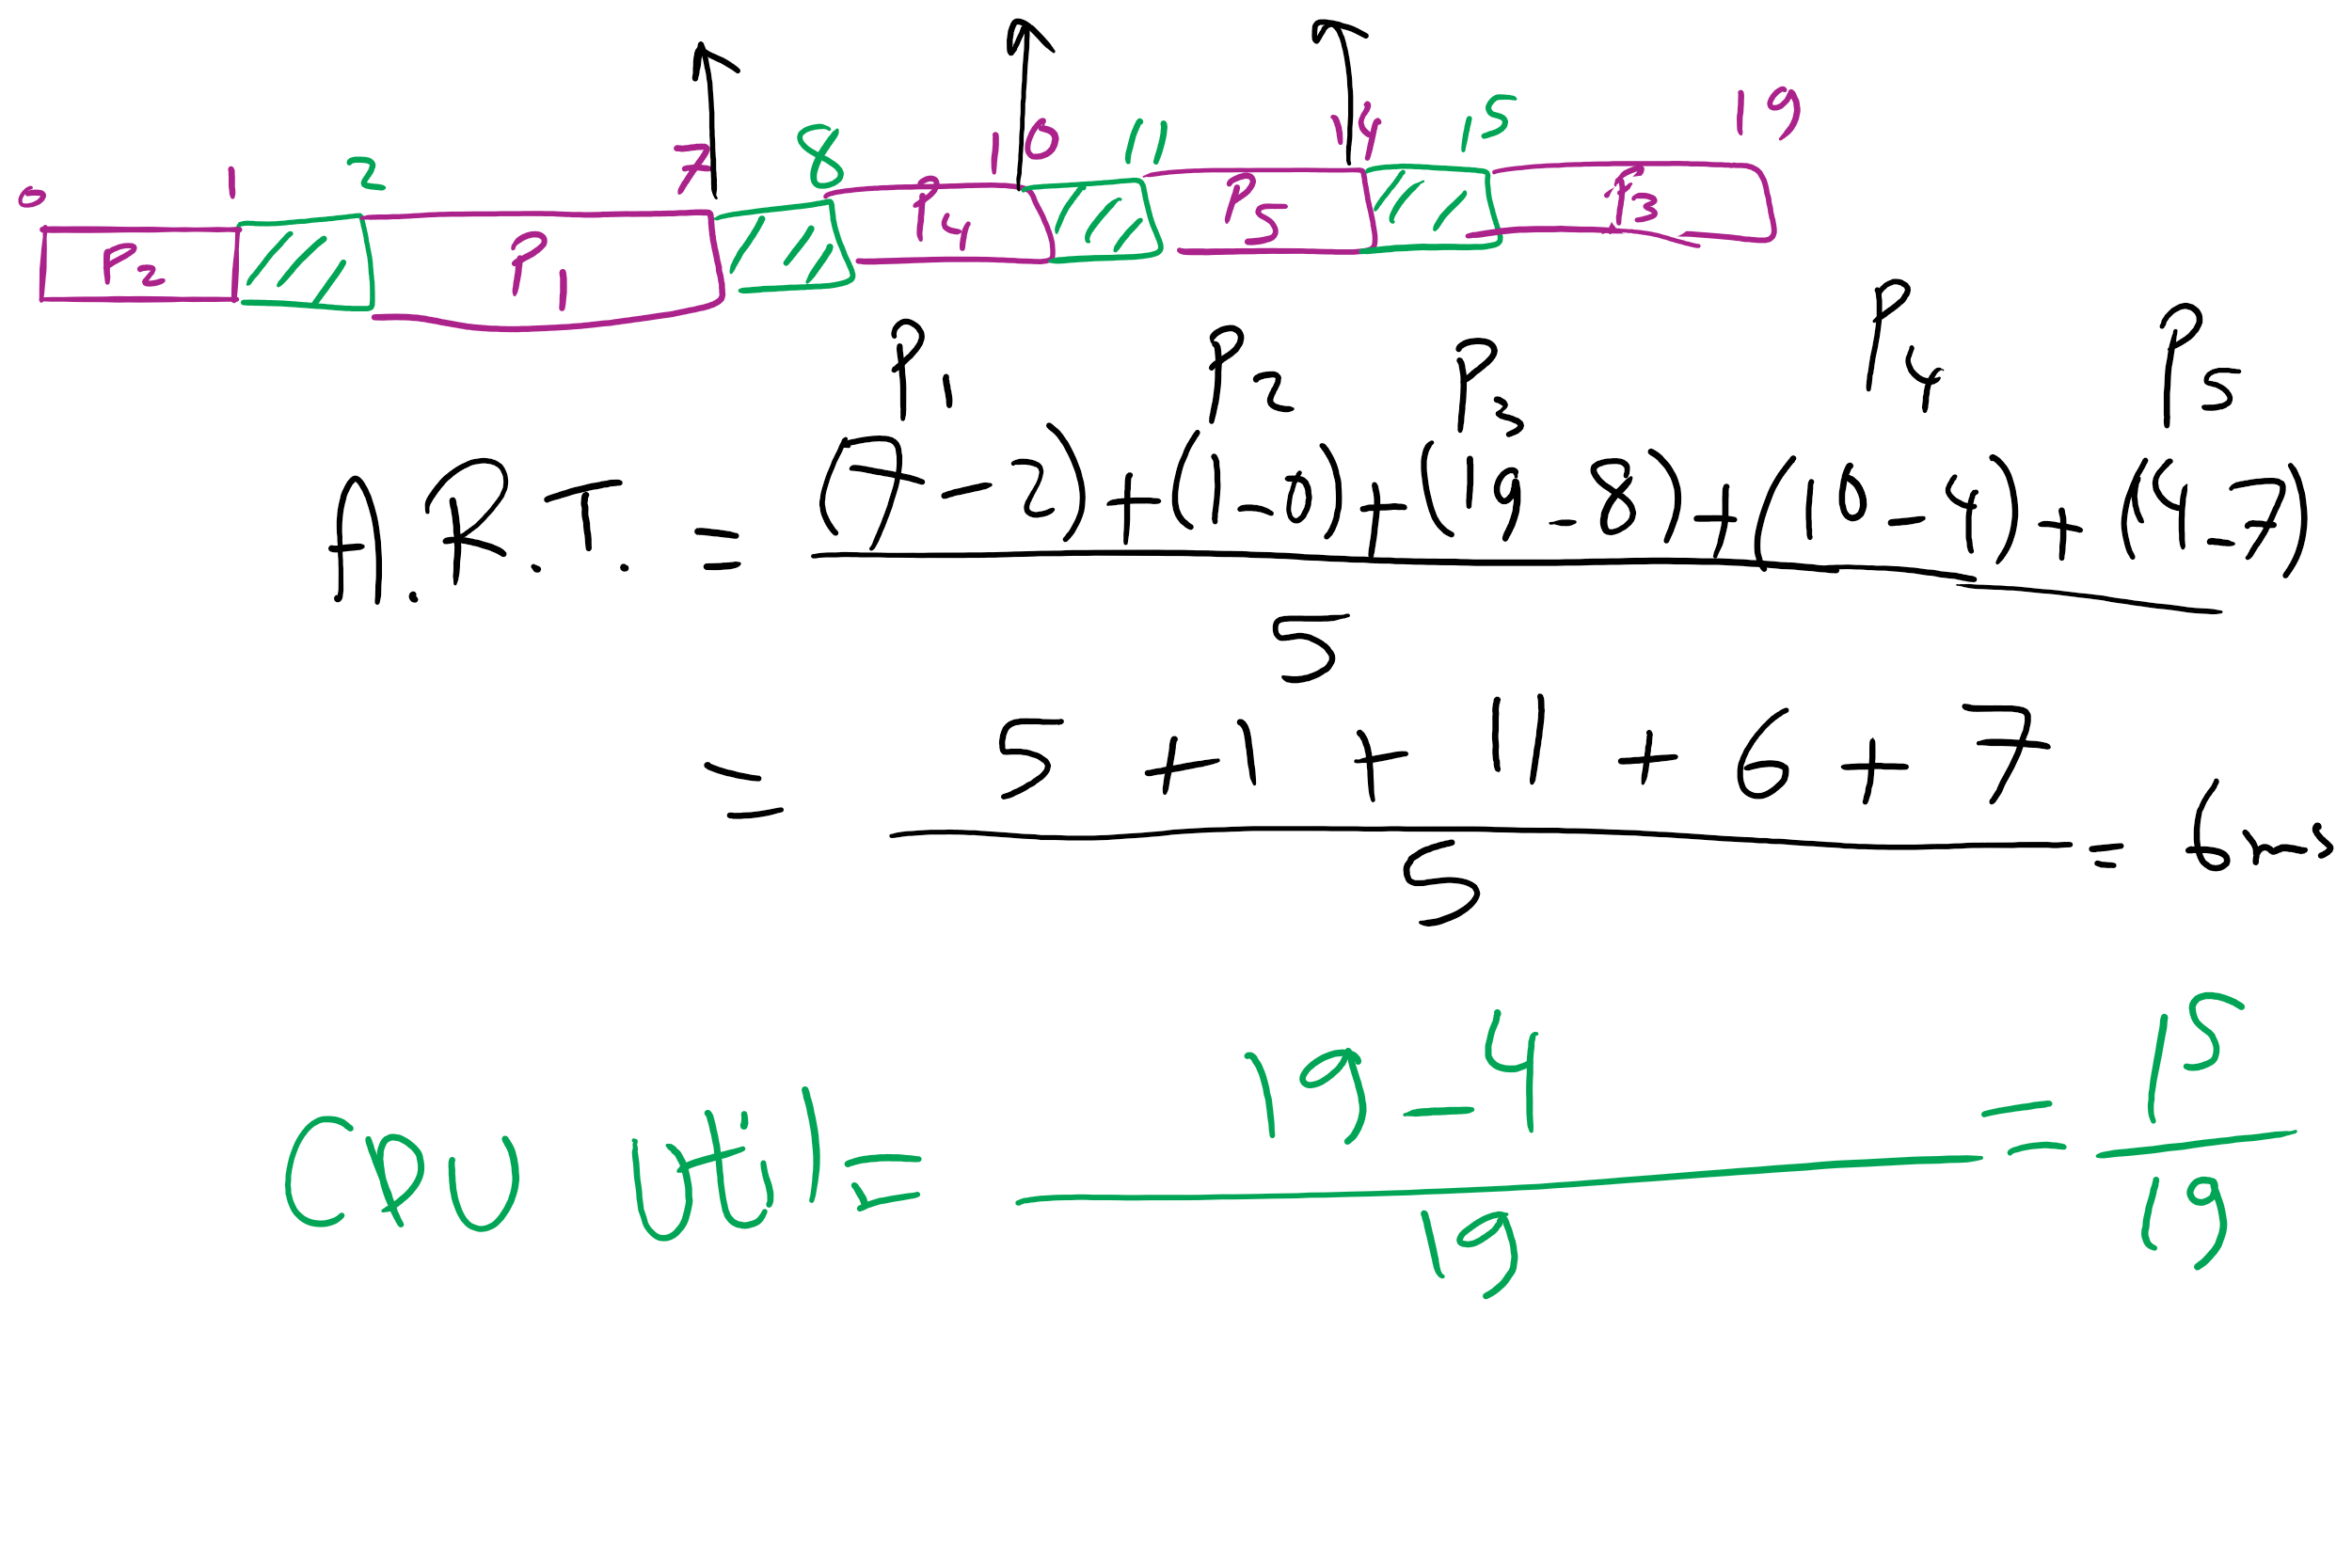 0 1 2 7 8 10 11 14 15 19
P2 P1 P4 P5 P3
P1 P2 P3 P4 P5
A.R.T. = (7-2)+(1-0)+(19-8)+(10-4)+(14-7)
5
= 5 + 1 + 11 + 6 + 7 = 6ms
5
CPU Util = 19-4 = 15
19 19